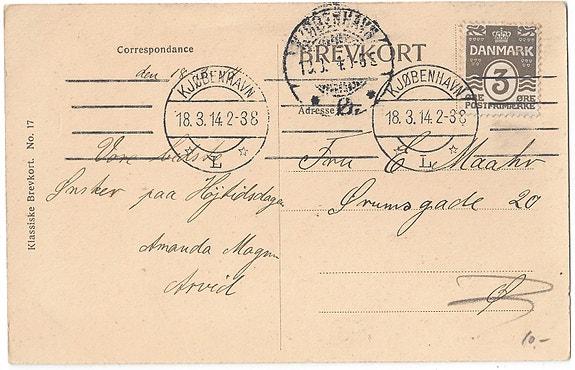 Correspondance
BREVKORT
DANMARK
3
ØRE ØRE
POSTFRIMÆRKE
KJØBENHAVN
18.3.14.2-3 8
L
KJØBENHAVN
18.3.14.2-3 8
L
KJØBENHAVN
Adresse
den 18
Vore bedste
Ønsker paa Højtidsdagen
Amanda
Arvid
Fru E. Maahr
Ørumsgade 20
Ø
Klassiske Brevkort. No. 17
10.-